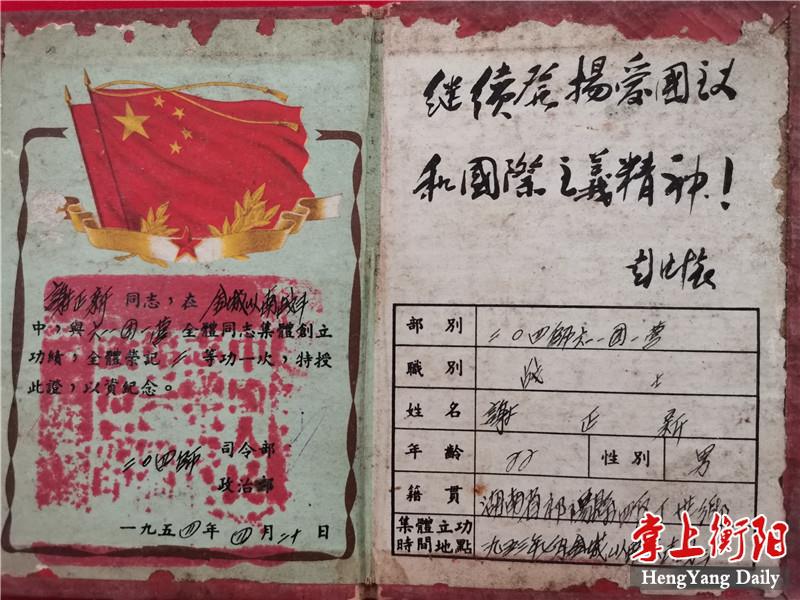 謝正新 同志，在 金城以南战斗
中，與 六一一团一营 全體同志集體創立
功績，全體榮記 二 等功一次，特授
此證，以資紀念。
二〇四师 司令部
政治部
一九五四年 四月二十日
继续发揚爱国主义
和國際主義精神！
彭德怀
部別 二〇四师六一一团一营
職別 战士
姓名 謝正新
年齡 22 性別 男
籍貫 湖南省祁陽縣
集體立功
時間地點 一九五三年 金城以南
掌上衡阳
HengYang Daily